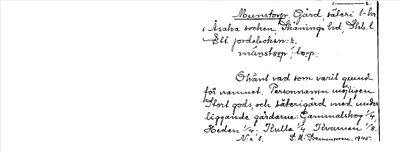 Munstorp, Gård, säteri 1 hr
i Åsaka socken, Skånings hd, Skbs l.
Ett jordeboken:
munstorp; torp.
Okänt vad som varit grund
för namnet. Personnamn möjligen
Stort gods, och säterigård med under
liggande gårdarne: Gammalskog 1/4,
Heden 1/4. Kulla 1/4 Kvarnen 1/8.
1945.